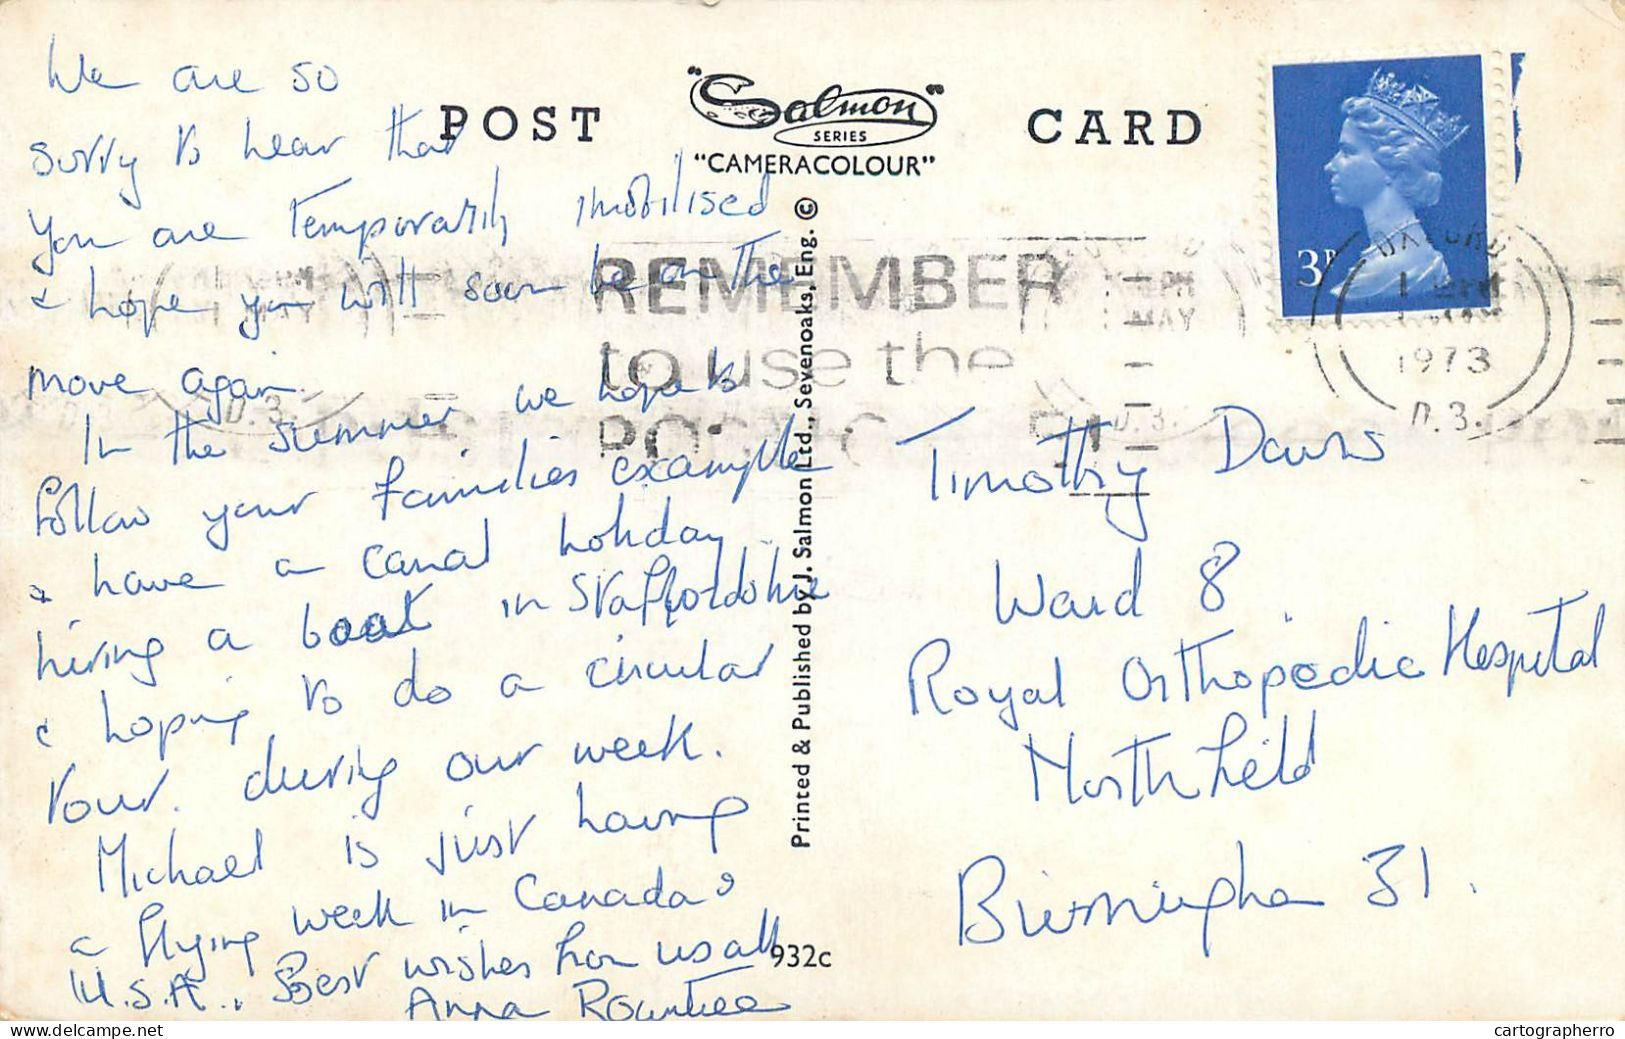 We are so
sorry to hear that
you are temporarily imobilised
& hope you will soon be on the
move again.
In the summer we hope to
follow your families example
& have a canal holiday
hiring a boat in Staffordshire
& hoping to do a circular
tour. during our week.
Michael is just having
a flying week in Canada &
U.S.A.. Best wishes from us all
Anna Rowntree
POST CARD
"Salmon"
SERIES
"CAMERACOLOUR"
Printed & Published by J. Salmon Ltd., Sevenoaks, Eng. ©
932c
3P
REMEMBER
to use the
OXFORD
PM
MAY
1973
D.3.
Timothy Davis
Ward 8
Royal Orthopedic Hospital
Northfield
Birmingham 31.
delcampe.net
cartographerro